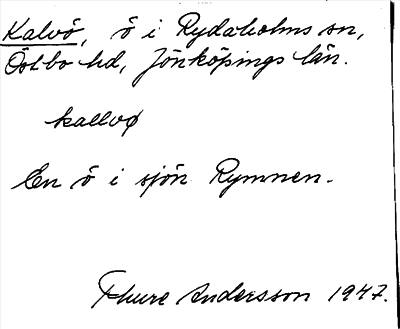 Kalvö, ö i Rydaholms sn,
Östbo hd, Jönköpings län.
kallvø
En ö i sjön Rymnen.
Thure Andersson 1947.